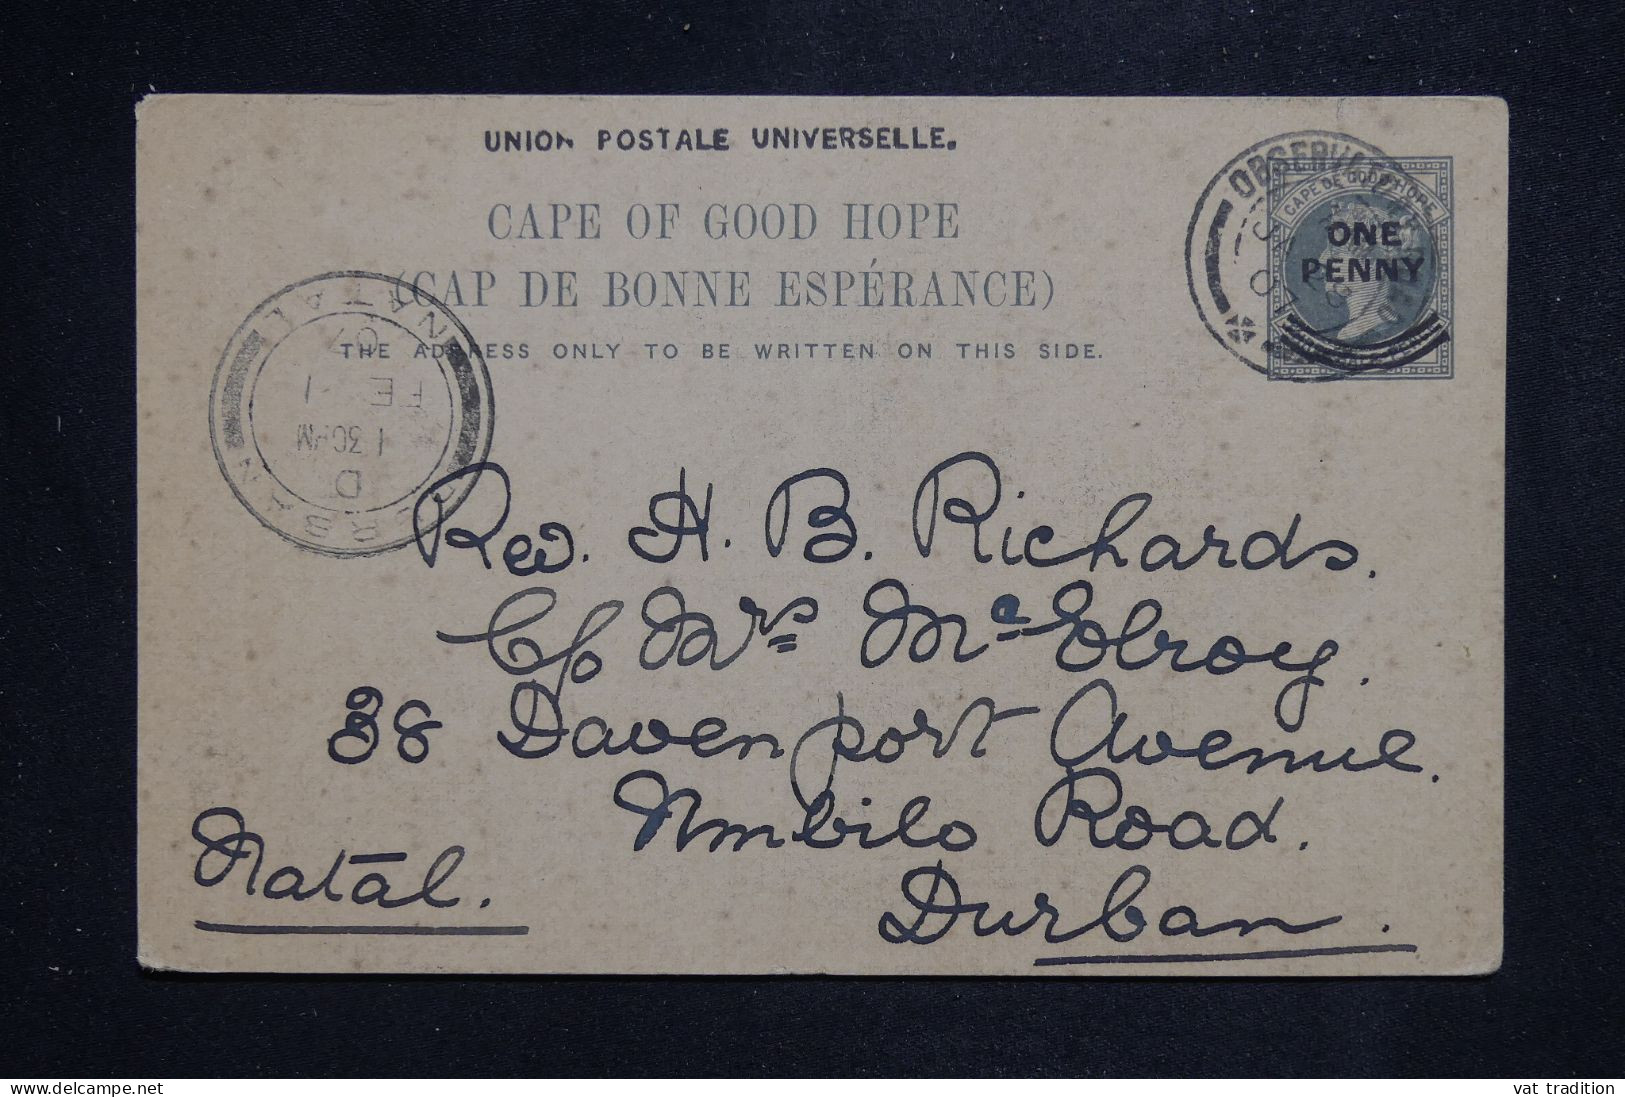 UNION POSTALE UNIVERSELLE.
CAPE OF GOOD HOPE
(CAP DE BONNE ESPÉRANCE)
THE ADDRESS ONLY TO BE WRITTEN ON THIS SIDE.
CAPE DE GOOD HOPE
ONE
PENNY
DURBAN
D
1 30AM
FE 1
07
NATAL
Rev. H. B. Richards.
C/o Mrs McElroy.
38 Davenport Avenue.
Nmbilo Road.
Durban.
Natal.
© delcampe.net
vat_tradition